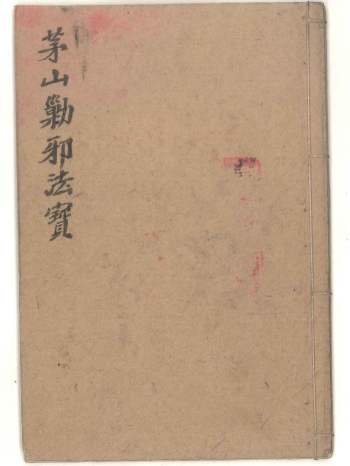 茅山勦邪法寶